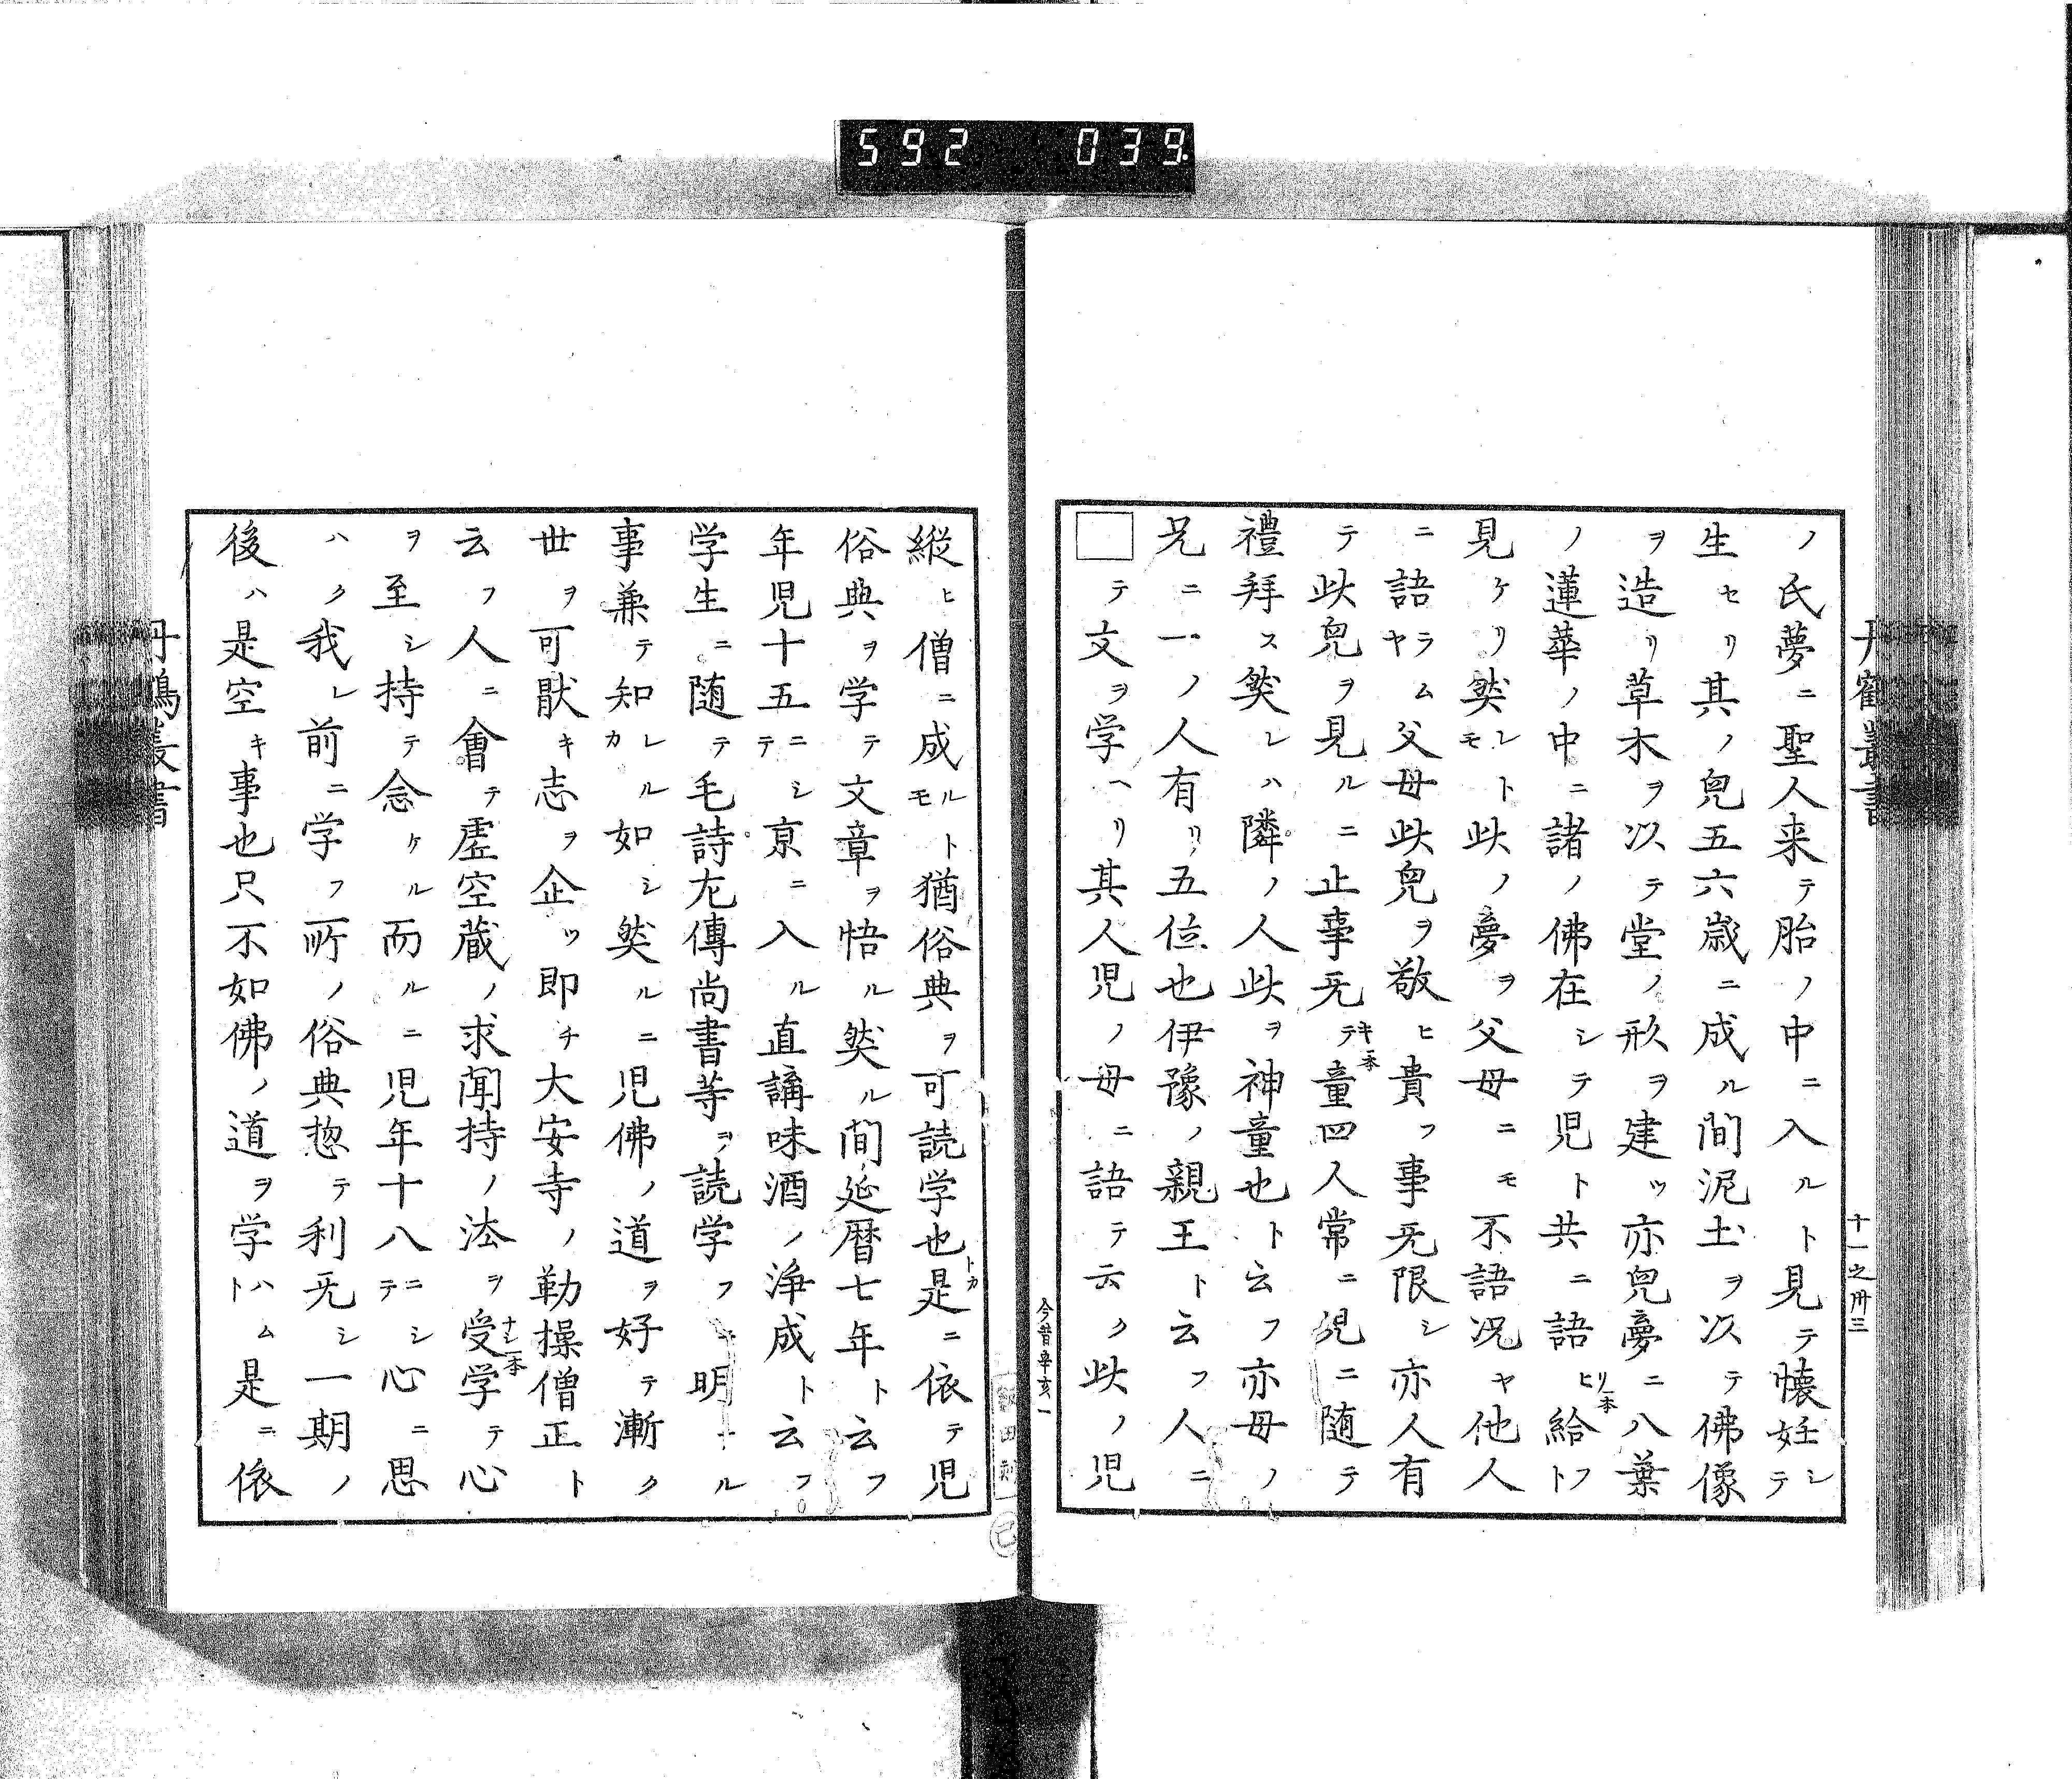 592 039
丹鶴叢書
十一之卅三
ノ氏夢ニ聖人来テ胎ノ中ニ入ルト見テ懐妊シテ
生セリ其ノ兒五六歳ニ成ル間泥土ヲ以テ佛像
ヲ造リ草木ヲ以テ堂ノ形ヲ建ツ亦兒夢ニ八葉
ノ蓮華ノ中ニ諸ノ佛在シテ児ト共ニ語ヒリ一本給フト
見ケリ然レモト此ノ夢ヲ父母ニモ不語况ヤ他人
ニ語ラムヤ父母此兒ヲ敬ヒ貴フ事无限シ亦人有
テ此兒ヲ見ルニ止事无キ一本テ童四人常ニ児ニ随テ
禮拜ス然レハ隣ノ人此ヲ神童也ト云フ亦母ノ
兄ニ一ノ人有リ五位也伊豫ノ親王ト云フ人ニ
□テ文ヲ学ヘリ其人児ノ母ニ語テ云ク此ノ児
今昔辛亥一
縦ヒ僧ニ成ルモト猶俗典ヲ可読学也トカ是ニ依テ児
俗典ヲ学テ文章ヲ悟ル然ル間延暦七年ト云フ
年児十五ニシテ京ニ入ル直講味酒ノ浄成ト云フ
学生ニ随テ毛詩左傳尚書等ヲ読学フ明ナル
事兼テ知レルカ如シ然ルニ児佛ノ道ヲ好テ漸ク
世ヲ可猒キ志ヲ企ツ即チ大安寺ノ勤操僧正ト
云フ人ニ會テ虚空蔵ノ求聞持ノ法ヲ受ナシ一本学テ心
ヲ至シ持テ念ケル而ルニ児年十八ニシテ心ニ思
ハク我レ前ニ学フ所ノ俗典惣テ利无シ一期ノ
後ハ是空キ事也只不如佛ノ道ヲ学ハムト是ニ依
丹鶴叢書